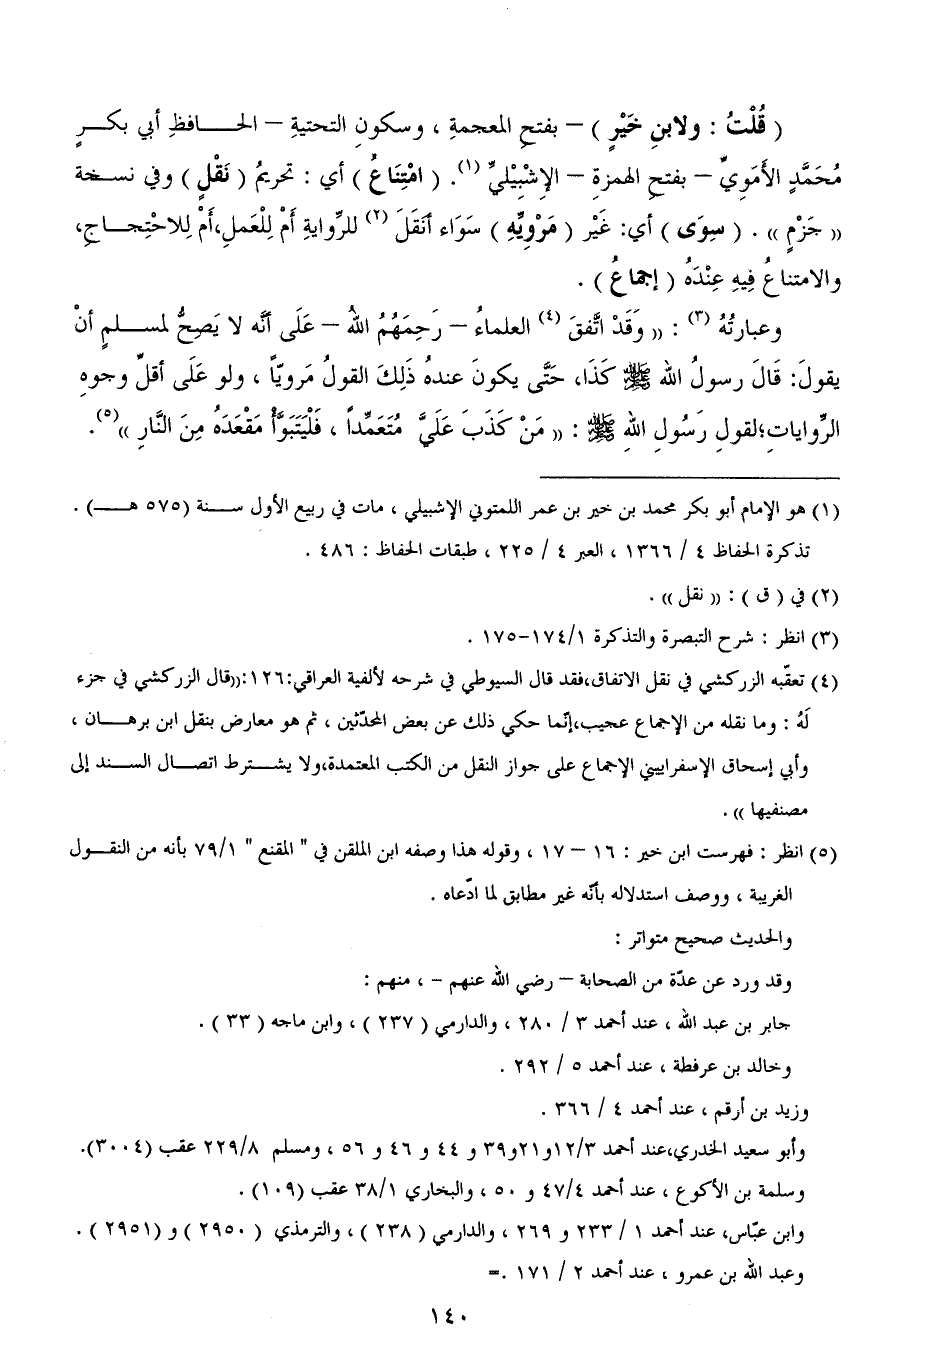 ( قُلْتُ : ولابنِ خَيْرٍ ) – بفتحِ المعجمةِ ، وسكونِ التحتيةِ – الحـــافظِ أبي بكـــرٍ
مُحَمَّدٍ الأَمَوِيِّ – بفتحِ الهمزةِ – الإِشْبِيْلِيِّ (١). ( امْتِنَاعُ ) أي : تحريمُ ( نَقْلِ ) وفي نسخة
(( جَزْمِ )) . ( سِوَى ) أي: غَيْرِ ( مَرْوِيِّهِ ) سَوَاء أَنَقَلَ (٢) للرِّوايةِ أَمْ لِلْعملِ،أَمْ لِلاحْتِجــاجِ،
والامتناعُ فِيهِ عِنْدَهُ ( إجماعُ ) .
وعبارتُهُ (٣) : (( وَقَدْ اتَّفقَ (٤) العلماءُ – رَحِمَهُمُ اللهُ – عَلَى أنَّه لا يَصِحُّ لمســلمٍ أنْ
يقولَ: قَالَ رسولُ الله ﷺ كَذَا، حَتَّى يكون عندهُ ذَلِكَ القولُ مَرويّاً ، ولو عَلَى أقلِّ وجوهِ
الرِّواياتِ؛لقولِ رَسُولِ اللهِ ﷺ : (( مَنْ كَذَبَ عَلَيَّ مُتَعَمِّداً ، فَلْيَتَبَوَّأْ مَقْعَدَهُ مِنَ النَّارِ )) (٥).
(١) هو الإمام أبو بكر محمد بن خير بن عمر اللمتوني الإشبيلي ، مات في ربيع الأول ســـنة (٥٧٥ هـــ) .
تذكرة الحفاظ ٤ / ١٣٦٦ ، العبر ٤ / ٢٢٥ ، طبقات الحفاظ : ٤٨٦ .
(٢) في ( ق ) : (( نقل )) .
(٣) انظر : شرح التبصرة والتذكرة ١/١٧٤-١٧٥ .
(٤) تعقّبه الزركشي في نقل الاتفاق،فقد قال السيوطي في شرحه لألفية العراقي:١٢٦:((قال الزركشي في جزء
لَهُ : وما نقله من الإجماع عجيب،إنّما حكي ذلك عن بعض المحدّثين ، ثم هو معارض بنقل ابن برهـــان ،
وأبي إسحاق الإسفراييني الإجماع على جواز النقل من الكتب المعتمدة،ولا يشــترط اتصــال الســند إلى
مصنفيها )) .
(٥) انظر : فهرست ابن خير : ١٦ – ١٧ ، وقوله هذا وصفه ابن الملقن في " المقنع " ٧٩/١ بأنه من النقــول
الغريبة ، ووصف استدلاله بأنّه غير مطابق لما ادّعاه .
والحديث صحيح متواتر :
وقد ورد عن عدّة من الصحابة – رضي الله عنهم – ، منهم :
جابر بن عبد الله ، عند أحمد ٣ / ٢٨٠ ، والدارمي ( ٢٣٧ ) ، وابن ماجه ( ٣٣ ) .
وخالد بن عرفطة ، عند أحمد ٥ / ٢٩٢ .
وزيد بن أرقم ، عند أحمد ٤ / ٣٦٦ .
وأبو سعيد الخدري،عند أحمد ١٢/٣و٢١و٣٩ و ٤٤ و ٤٦ و ٥٦ ، ومسلم ٢٢٩/٨ عقب (٣٠٠٤).
وسلمة بن الأكوع ، عند أحمد ٤٧/٤ و ٥٠ ، والبخاري ٣٨/١ عقب (١٠٩) .
وابن عبّاس، عند أحمد ١ / ٢٣٣ و ٢٦٩ ، والدارمي ( ٢٣٨ ) ، والترمذي ( ٢٩٥٠ ) و ( ٢٩٥١ ) .
وعبد الله بن عمرو ، عند أحمد ٢ / ١٧١ .=
١٤٠